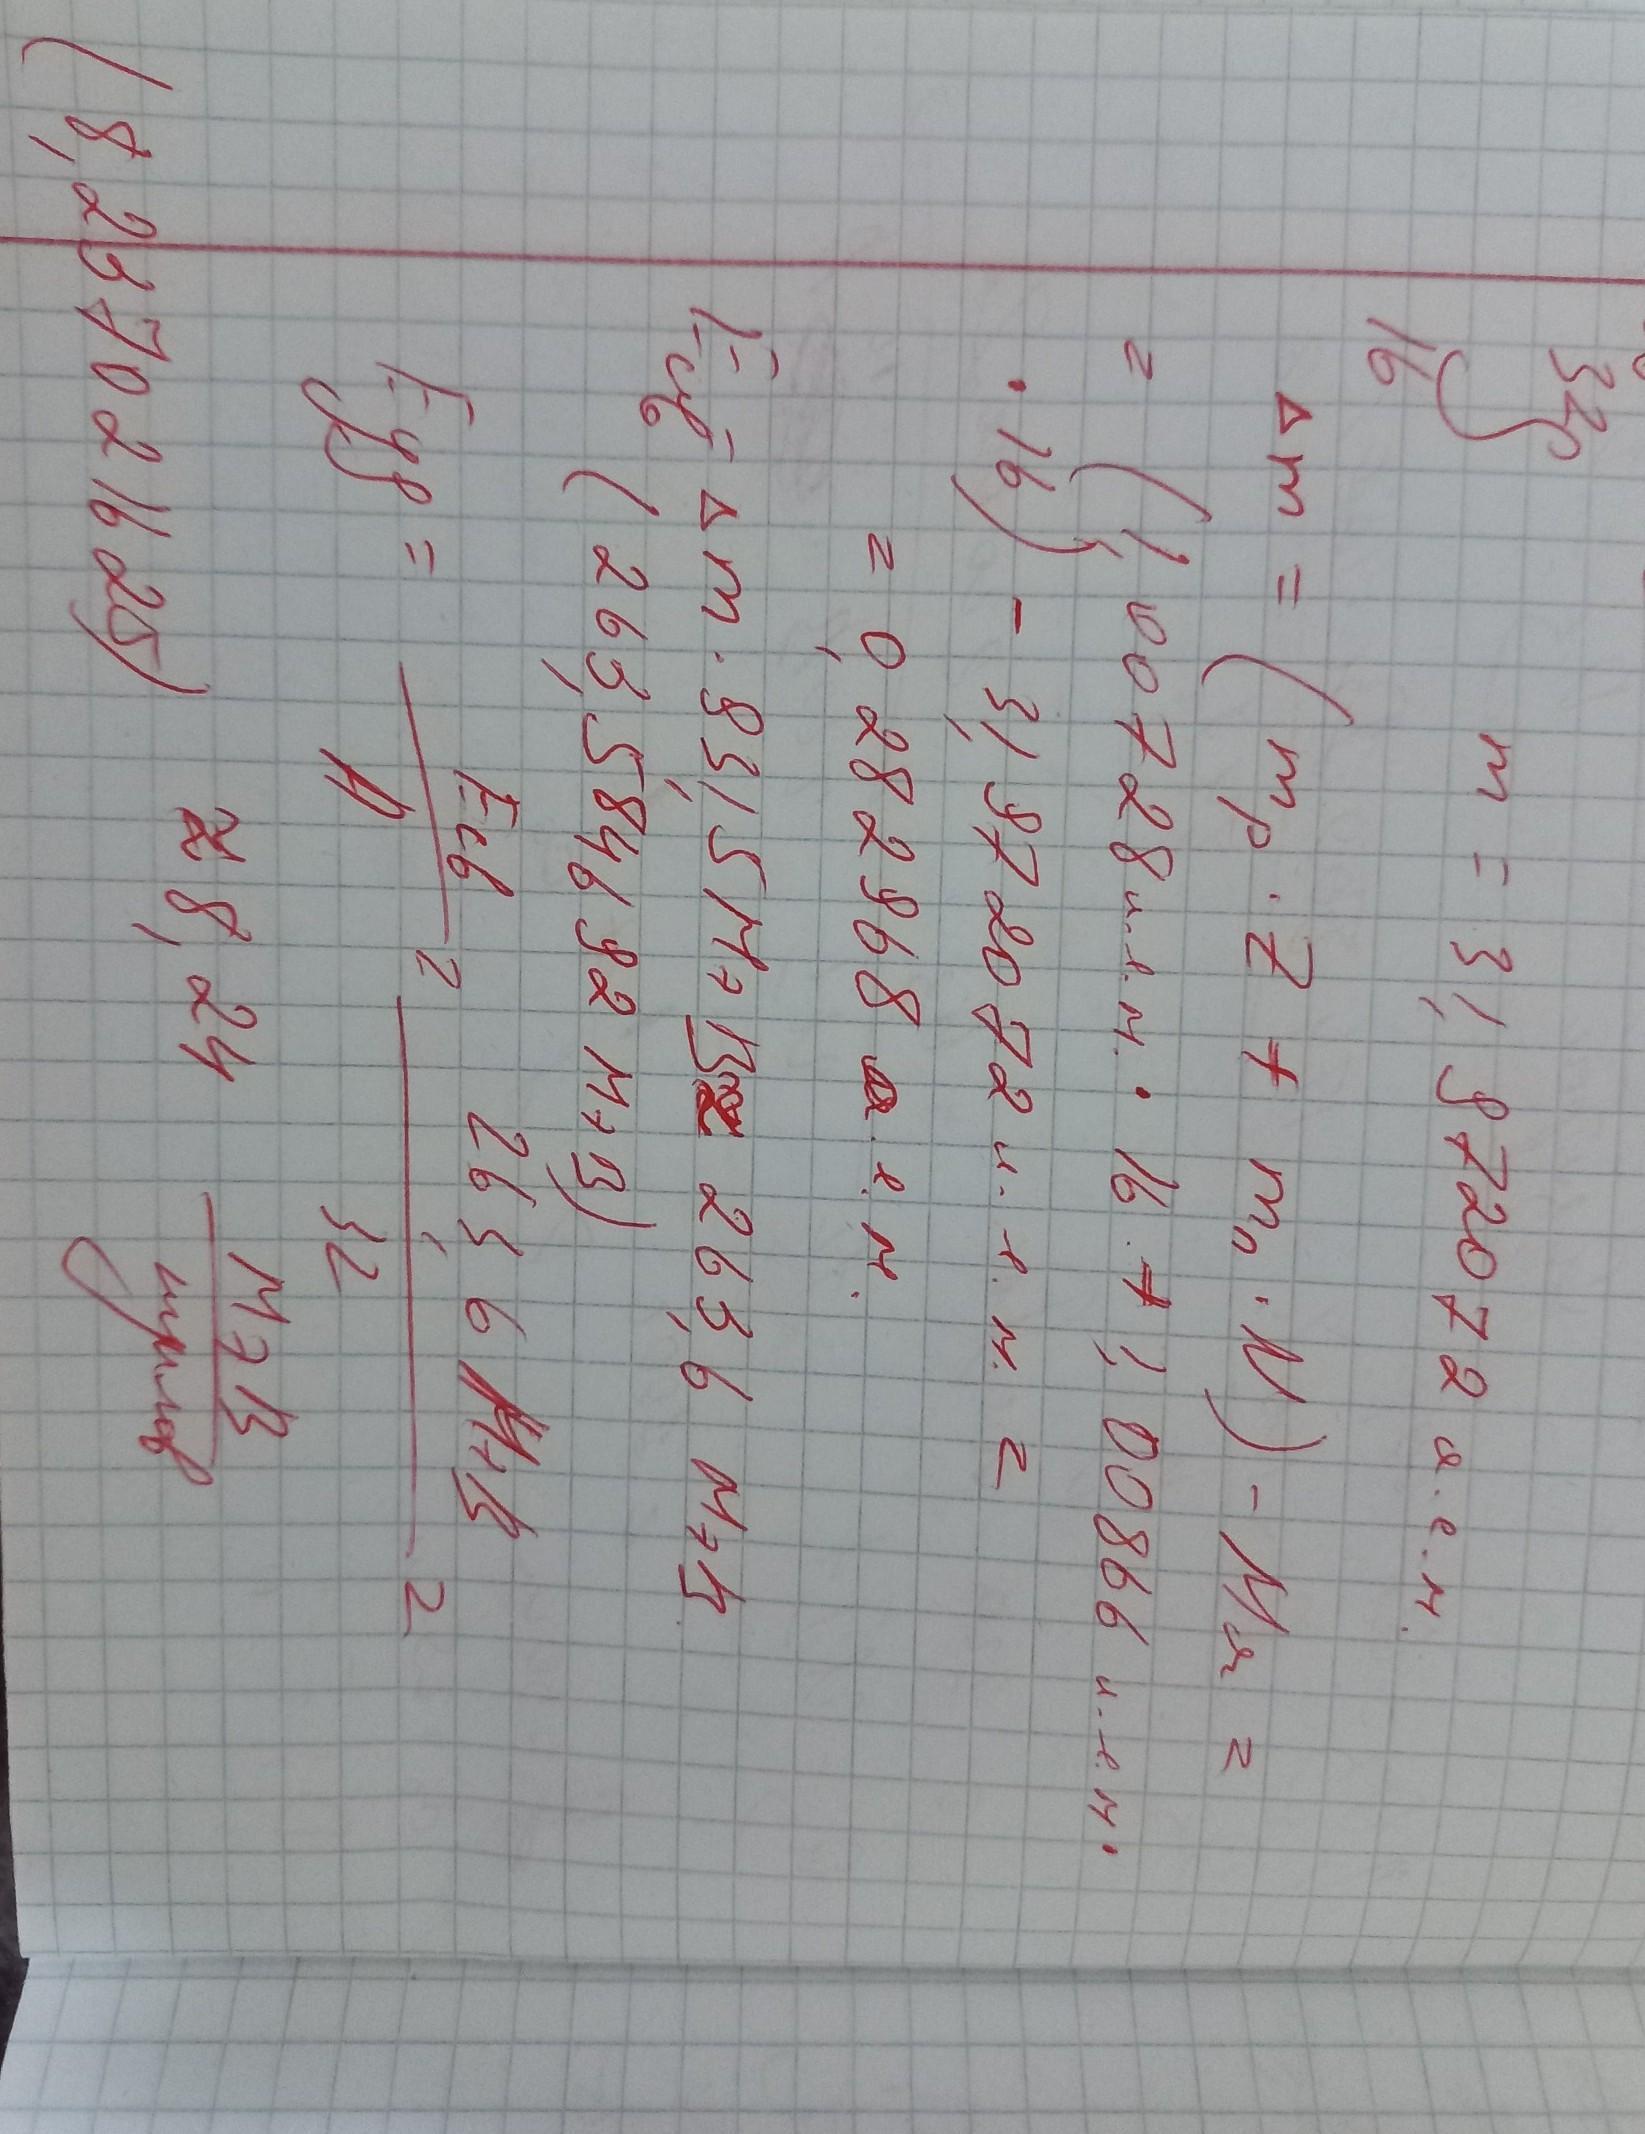 32
16 S
m = 31,972072 а.е.м.
Δm = (mp · Z + mn · N) - Mя =
= (1,00728 а.е.м. · 16 + 1,00866 а.е.м. ·
· 16) - 31,972072 а.е.м. =
= 0,282968 а.е.м.
Eсв = Δm · 931,5 МэВ ≈ 263,6 МэВ
(263,5846192 МэВ)
Eуд = Eсв / A = 263,6 МэВ / 32 =
≈ 8,24 МэВ / нуклов
(8,237021625)